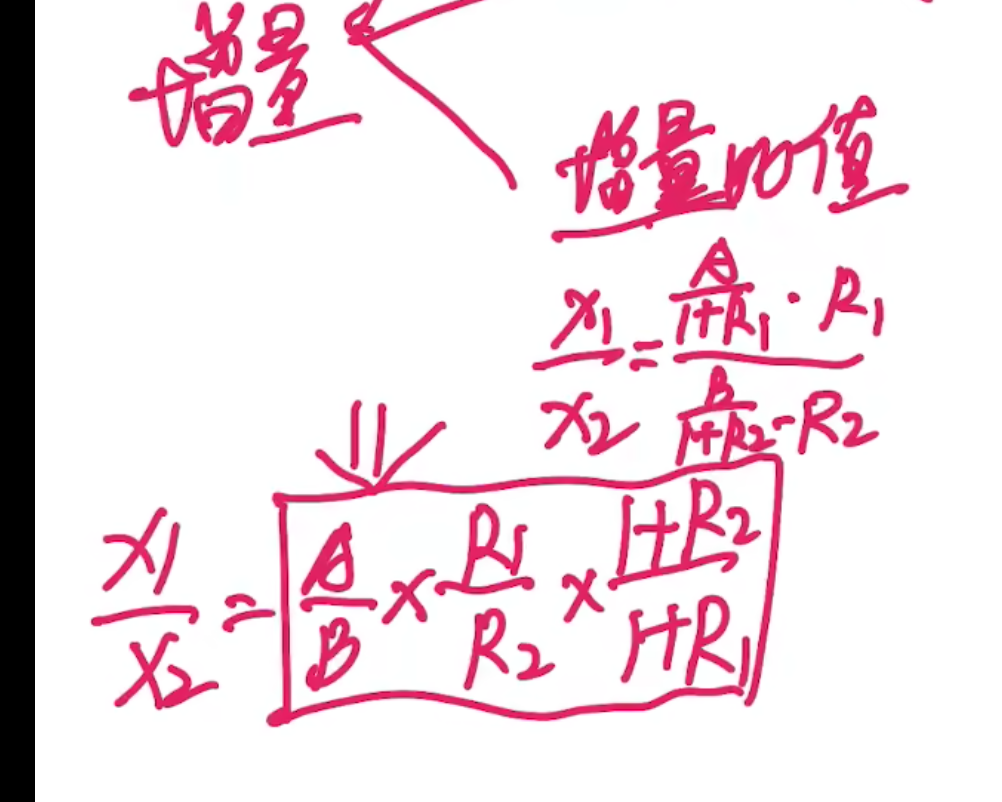 增量
增量的值
x₁/x₂ = (A/(1+R₁) · R₁)/(B/(1+R₂) · R₂)
x₁/x₂ = A/B × R₁/R₂ × (1+R₂)/(1+R₁)